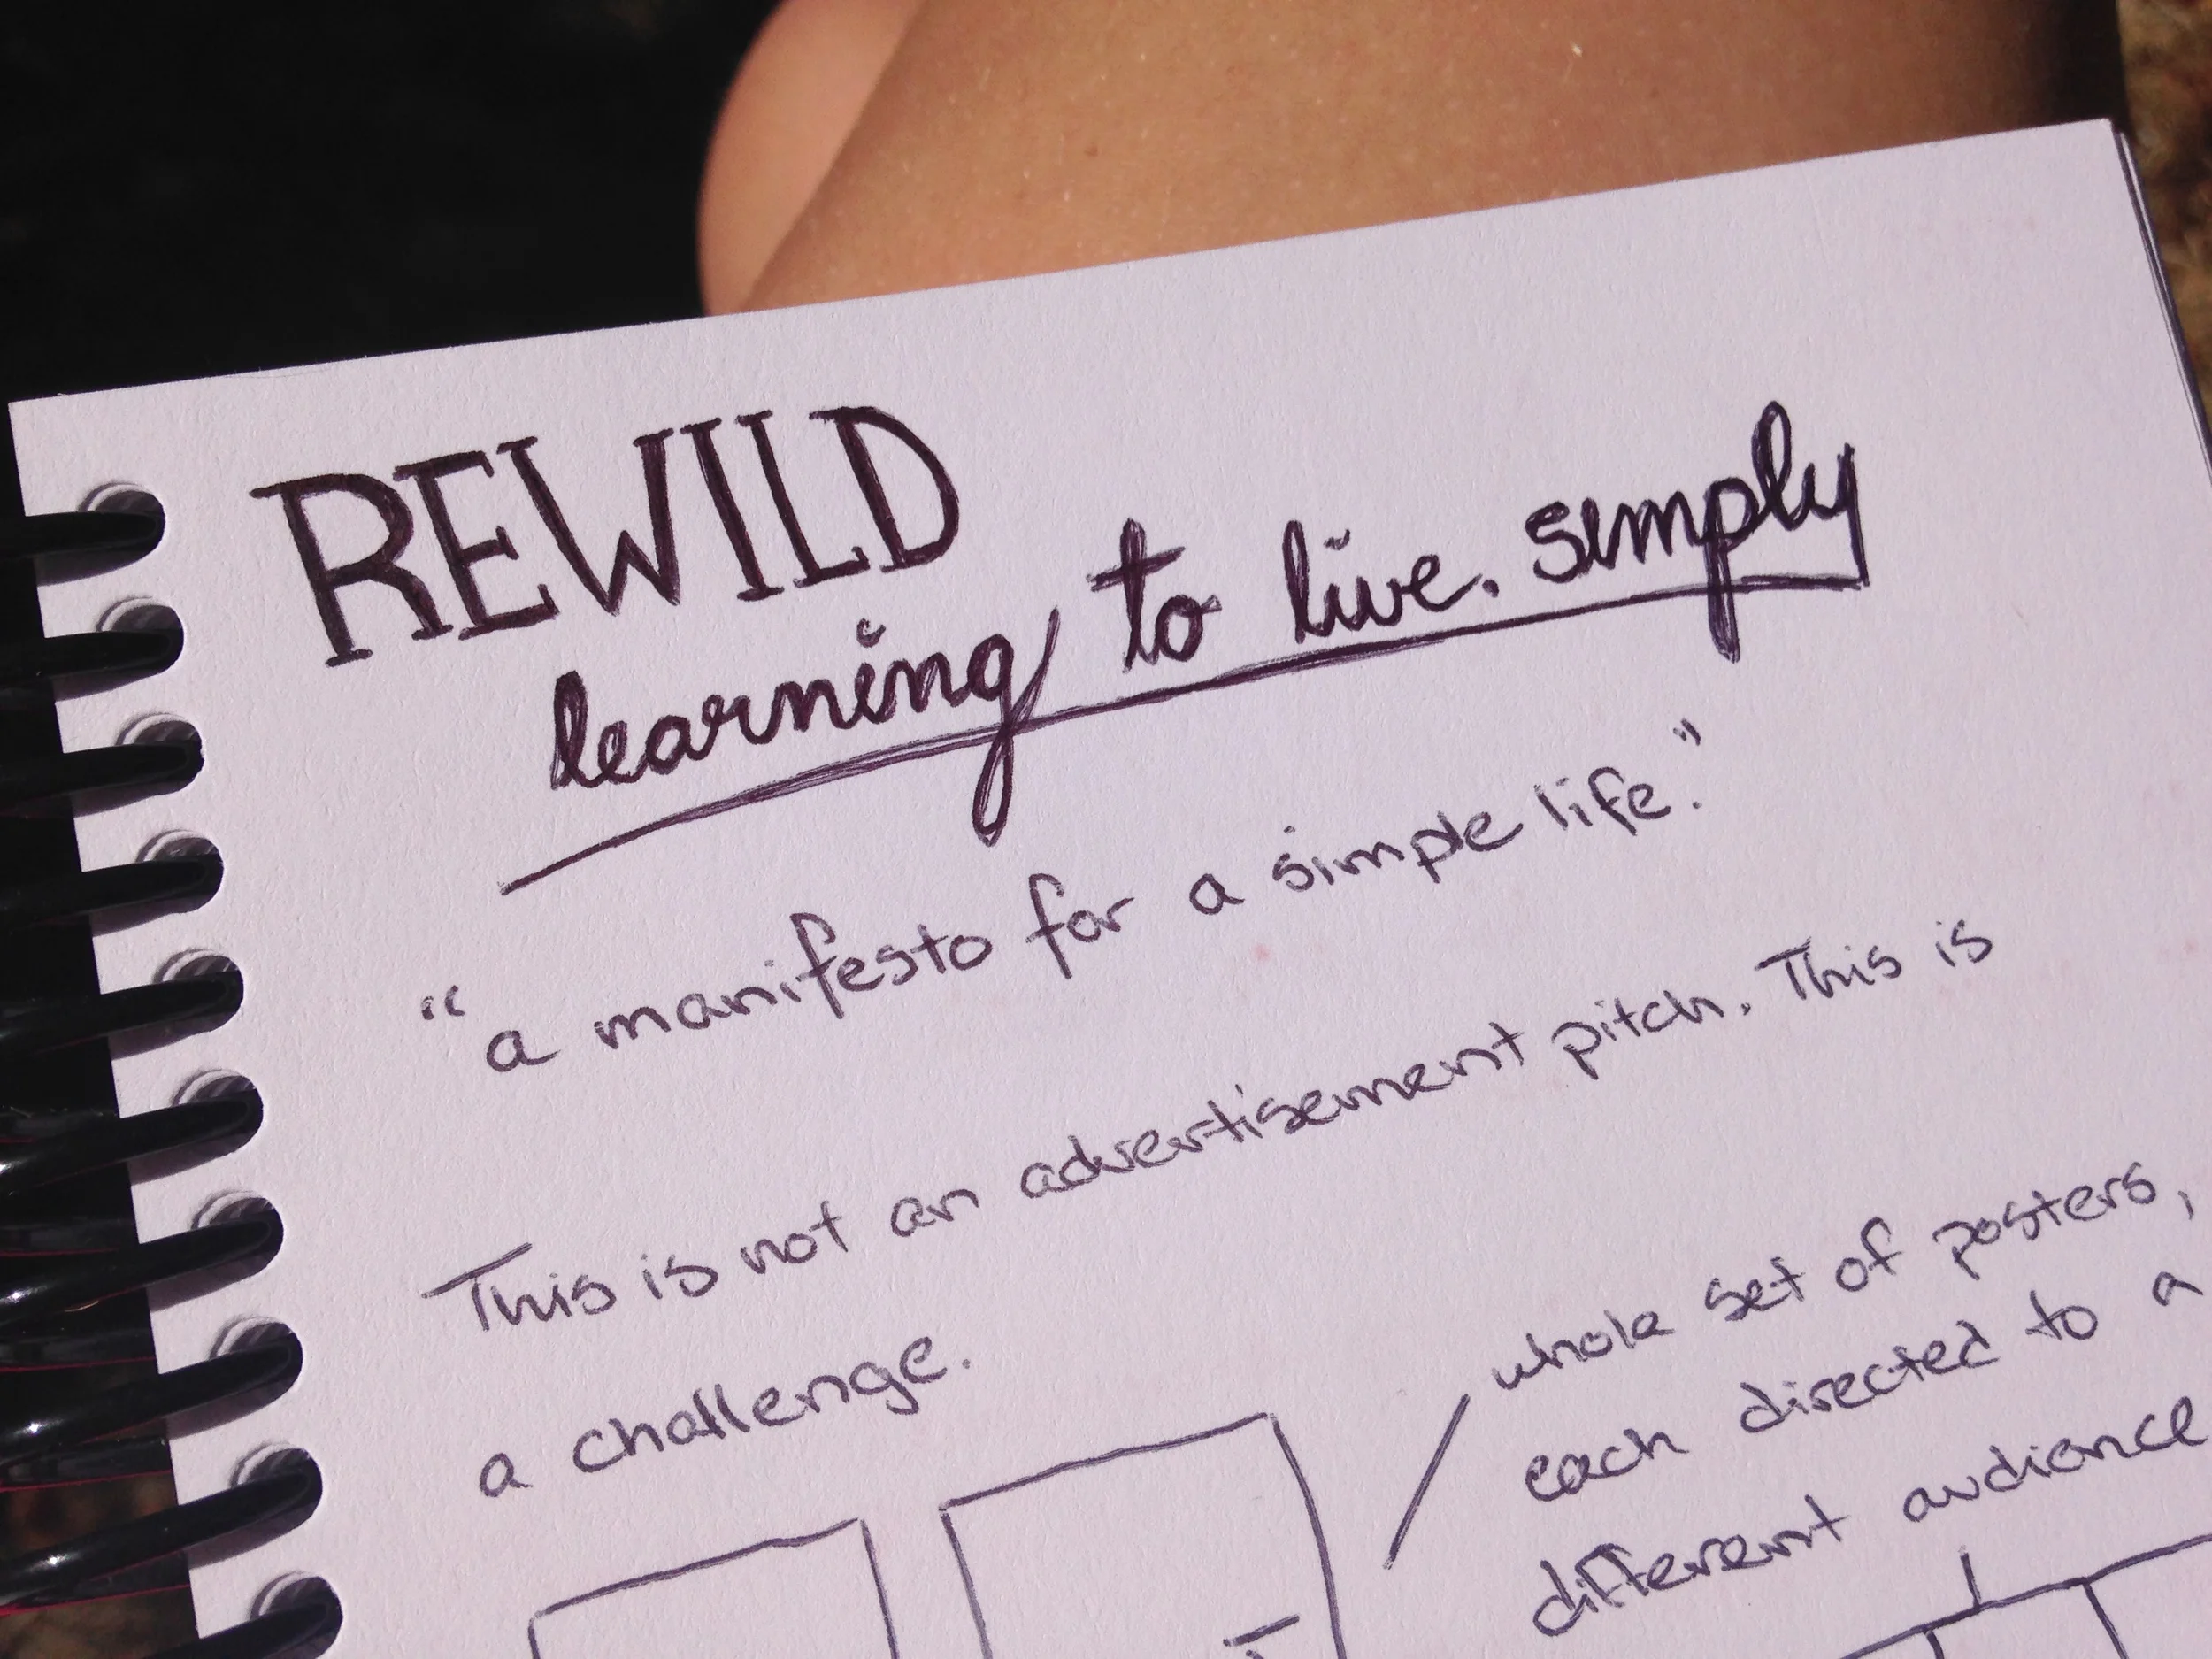 REWILD
learning to live. simply
“a manifesto for a simple life.”
This is not an advertisement pitch. This is
a challenge.
whole set of posters,
each directed to a
different audience